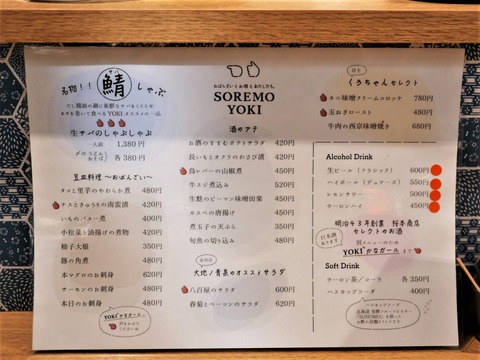 名物!!
鯖
しゃぶ
だし醤油の鍋に新鮮なサバをくぐらせ
ネギを巻いて食べるYOKIオススメの一品
生サバのしゃぶしゃぶ
一人前 1,380円
〆の うどん おそば 各380円
豆皿料理 〜おばんざい〜
タコと里芋のやわらか煮 480円
ナスときゅうりの南蛮漬 420円
いものバター煮 400円
小松菜と油揚げの煮物 420円
柚子大根 350円
豚の角煮 480円
本マグロのお刺身 620円
サーモンのお刺身 480円
本日のお刺身 480円
YOKIかなガール
おばんざいとお燗とあたしたち。
SOREMO
YOKI
酒のアテ
お酒のすすむポテトサラダ 420円
長いもとオクラのわさび漬 420円
鳥レバーの山椒煮 450円
牛スジ煮込み 520円
生麩のピーマン味噌田楽 450円
カスベの唐揚げ 450円
煮玉子の天ぷら 350円
旬魚の切り込み 350円
大地ノ青果のオススメサラダ
八百屋のサラダ 600円
春菊とベーコンのサラダ 620円
くうちゃんセレクト
カニ味噌クリームコロッケ 780円
玉おぎロースト 480円
牛肉の西京味噌焼き 680円
Alcohol Drink
生ビール(クラシック) 600円
ハイボール(デュワーズ) 550円
レモンサワー 500円
ウーロンハイ 450円
明治43年創業 桜本商店
セレクトのお酒
日本酒
あります
別メニューのため
YOKIかなガールまで
Soft Drink
ウーロン茶/コーラ 各350円
ハスカップソーダ 400円
ハスカップソーダ